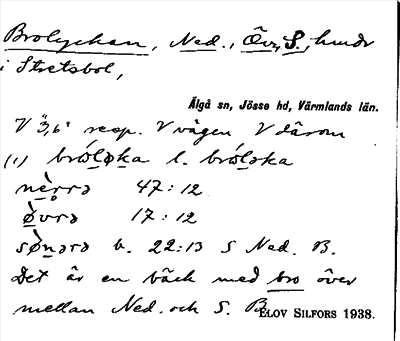 Brolyckan, Ned., Öv., S., hmdr
i Stretsbol,
Älgå sn, Jösse hd, Värmlands län.
V 3,6 resp. V vägen V därom
(1) l.
47:12
17:12
b. 22:13 S Ned. B.
Det är en bäck med bro över
mellan Ned. och S. B.
ELOV SILFORS 1938.